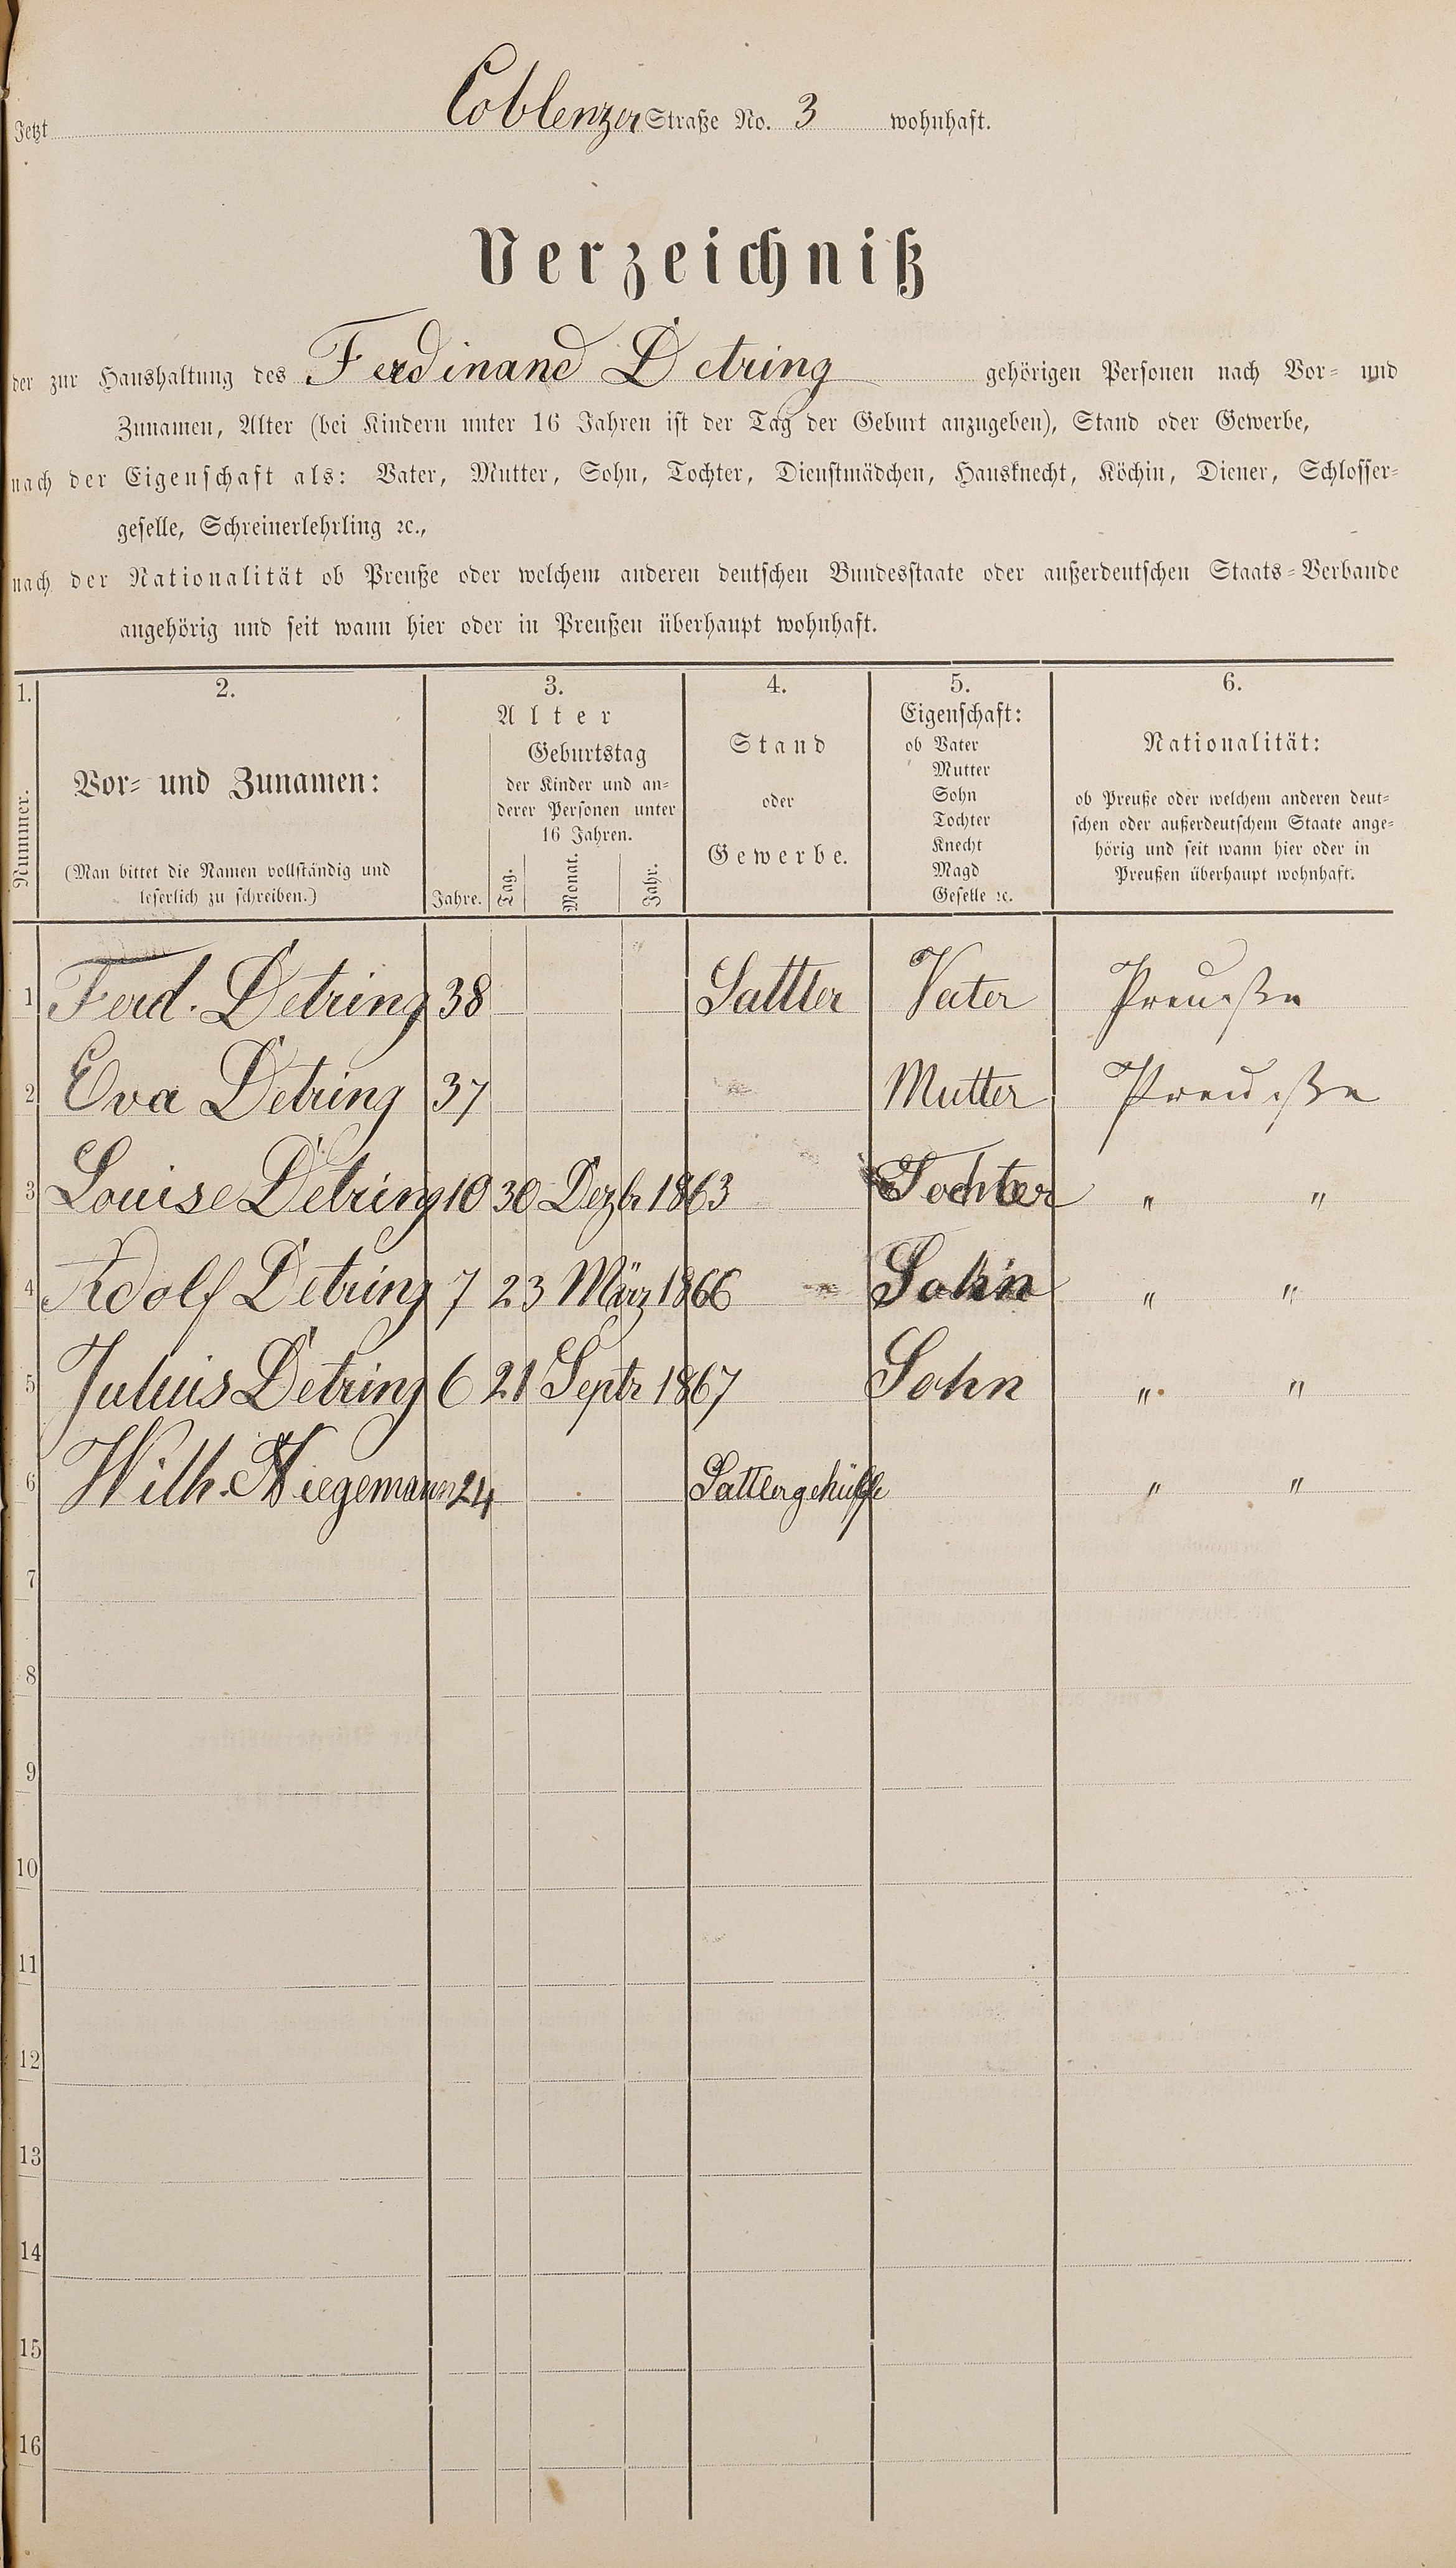 Jetzt Coblenzer Straße No. 3 wohnhaft.
Verzeichniß
der zur Haushaltung des Ferdinand Detring gehörigen Personen nach Vor- und
Zunamen, Alter (bei Kindern unter 16 Jahren ist der Tag der Geburt anzugeben), Stand oder Gewerbe,
nach der Eigenschaft als: Vater, Mutter, Sohn, Tochter, Dienstmädchen, Hausknecht, Köchin, Diener, Schlosser-
geselle, Schreinerlehrling ꝛc.,
nach der Nationalität ob Preuße oder welchem anderen deutschen Bundesstaate oder außerdeutschen Staats-Verbande
angehörig und seit wann hier oder in Preußen überhaupt wohnhaft.
1. 2. 3. 4. 5. 6.
Nummer.
Vor- und Zunamen:
(Man bittet die Namen vollständig und
leserlich zu schreiben.)
Alter
Jahre.
Geburtstag
der Kinder und an-
derer Personen unter
16 Jahren.
Tag. Monat. Jahr.
Stand
oder
Gewerbe.
Eigenschaft:
ob Vater
Mutter
Sohn
Tochter
Knecht
Magd
Geselle ꝛc.
Nationalität:
ob Preuße oder welchem anderen deut-
schen oder außerdeutschem Staate ange-
hörig und seit wann hier oder in
Preußen überhaupt wohnhaft.
1 Ferd. Detring 38 Sattler Vater Preuße
2 Eva Detring 37 Mutter Preuße
3 Louise Detring 10 30 Dezbr 1863 Tochter " "
4 Adolf Detring 7 23 März 1866 Sohn " "
5 Julius Detring 6 21 Septr 1867 Sohn " "
6 Wilh. Niegemann 24 Sattlergehülfe " "
7
8
9
10
11
12
13
14
15
16